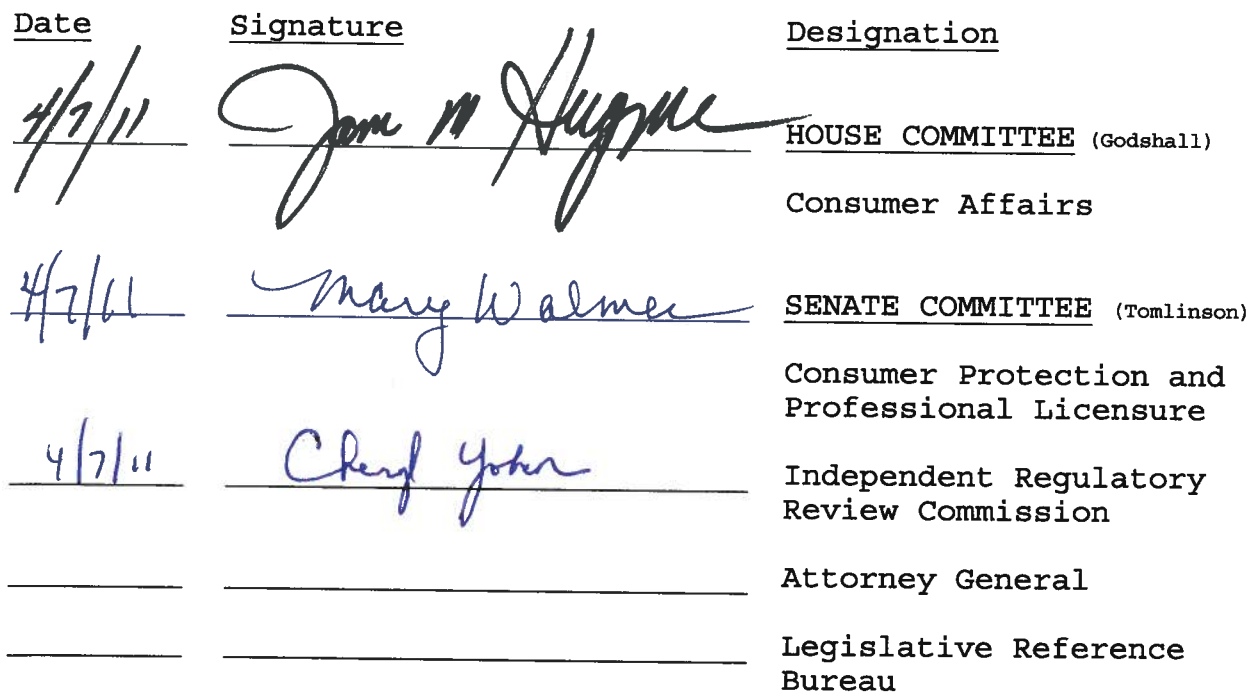 Date Signature Designation
4/7/11 M HOUSE COMMITTEE (Godshall)
Consumer Affairs
4/7/11 Mary Walmer SENATE COMMITTEE (Tomlinson)
Consumer Protection and
Professional Licensure
4/7/11 Cheryl Independent Regulatory
Review Commission
Attorney General
Legislative Reference
Bureau